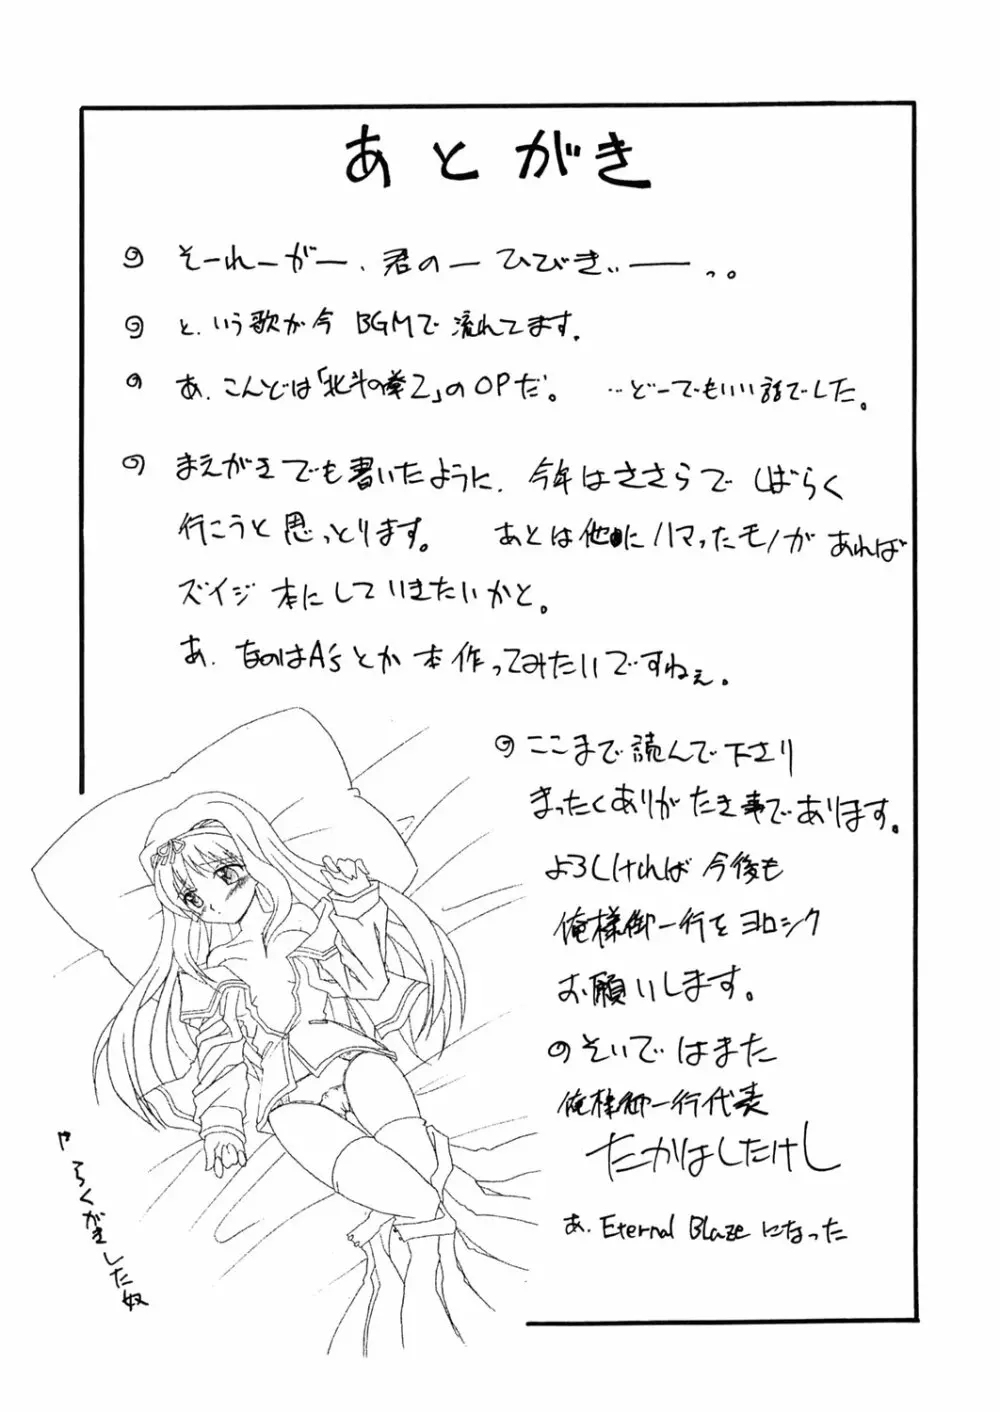 あとがき
そーれーがー、君のーひびきぃ――っ。
と、いう歌が今 BGMで流れてます。
あ、こんどは「北斗の拳2」のOPだ。 …どーでもいい話でした。
まえがきでも書いたように、今年はささらでしばらく
行こうと思っとります。 あとは他にハマったモノがあれば
ズイジ本にしていきたいかと。
あ、なのはA'sとか本作ってみたいですねぇ。
ここまで読んで下さり
まったくありがたき事であります。
よろしければ今後も
俺様御一行をヨロシク
お願いします。
そいではまた
俺様御一行代表
たかはしたけし
あ、Eternal Blazeになった
やらくがきした奴